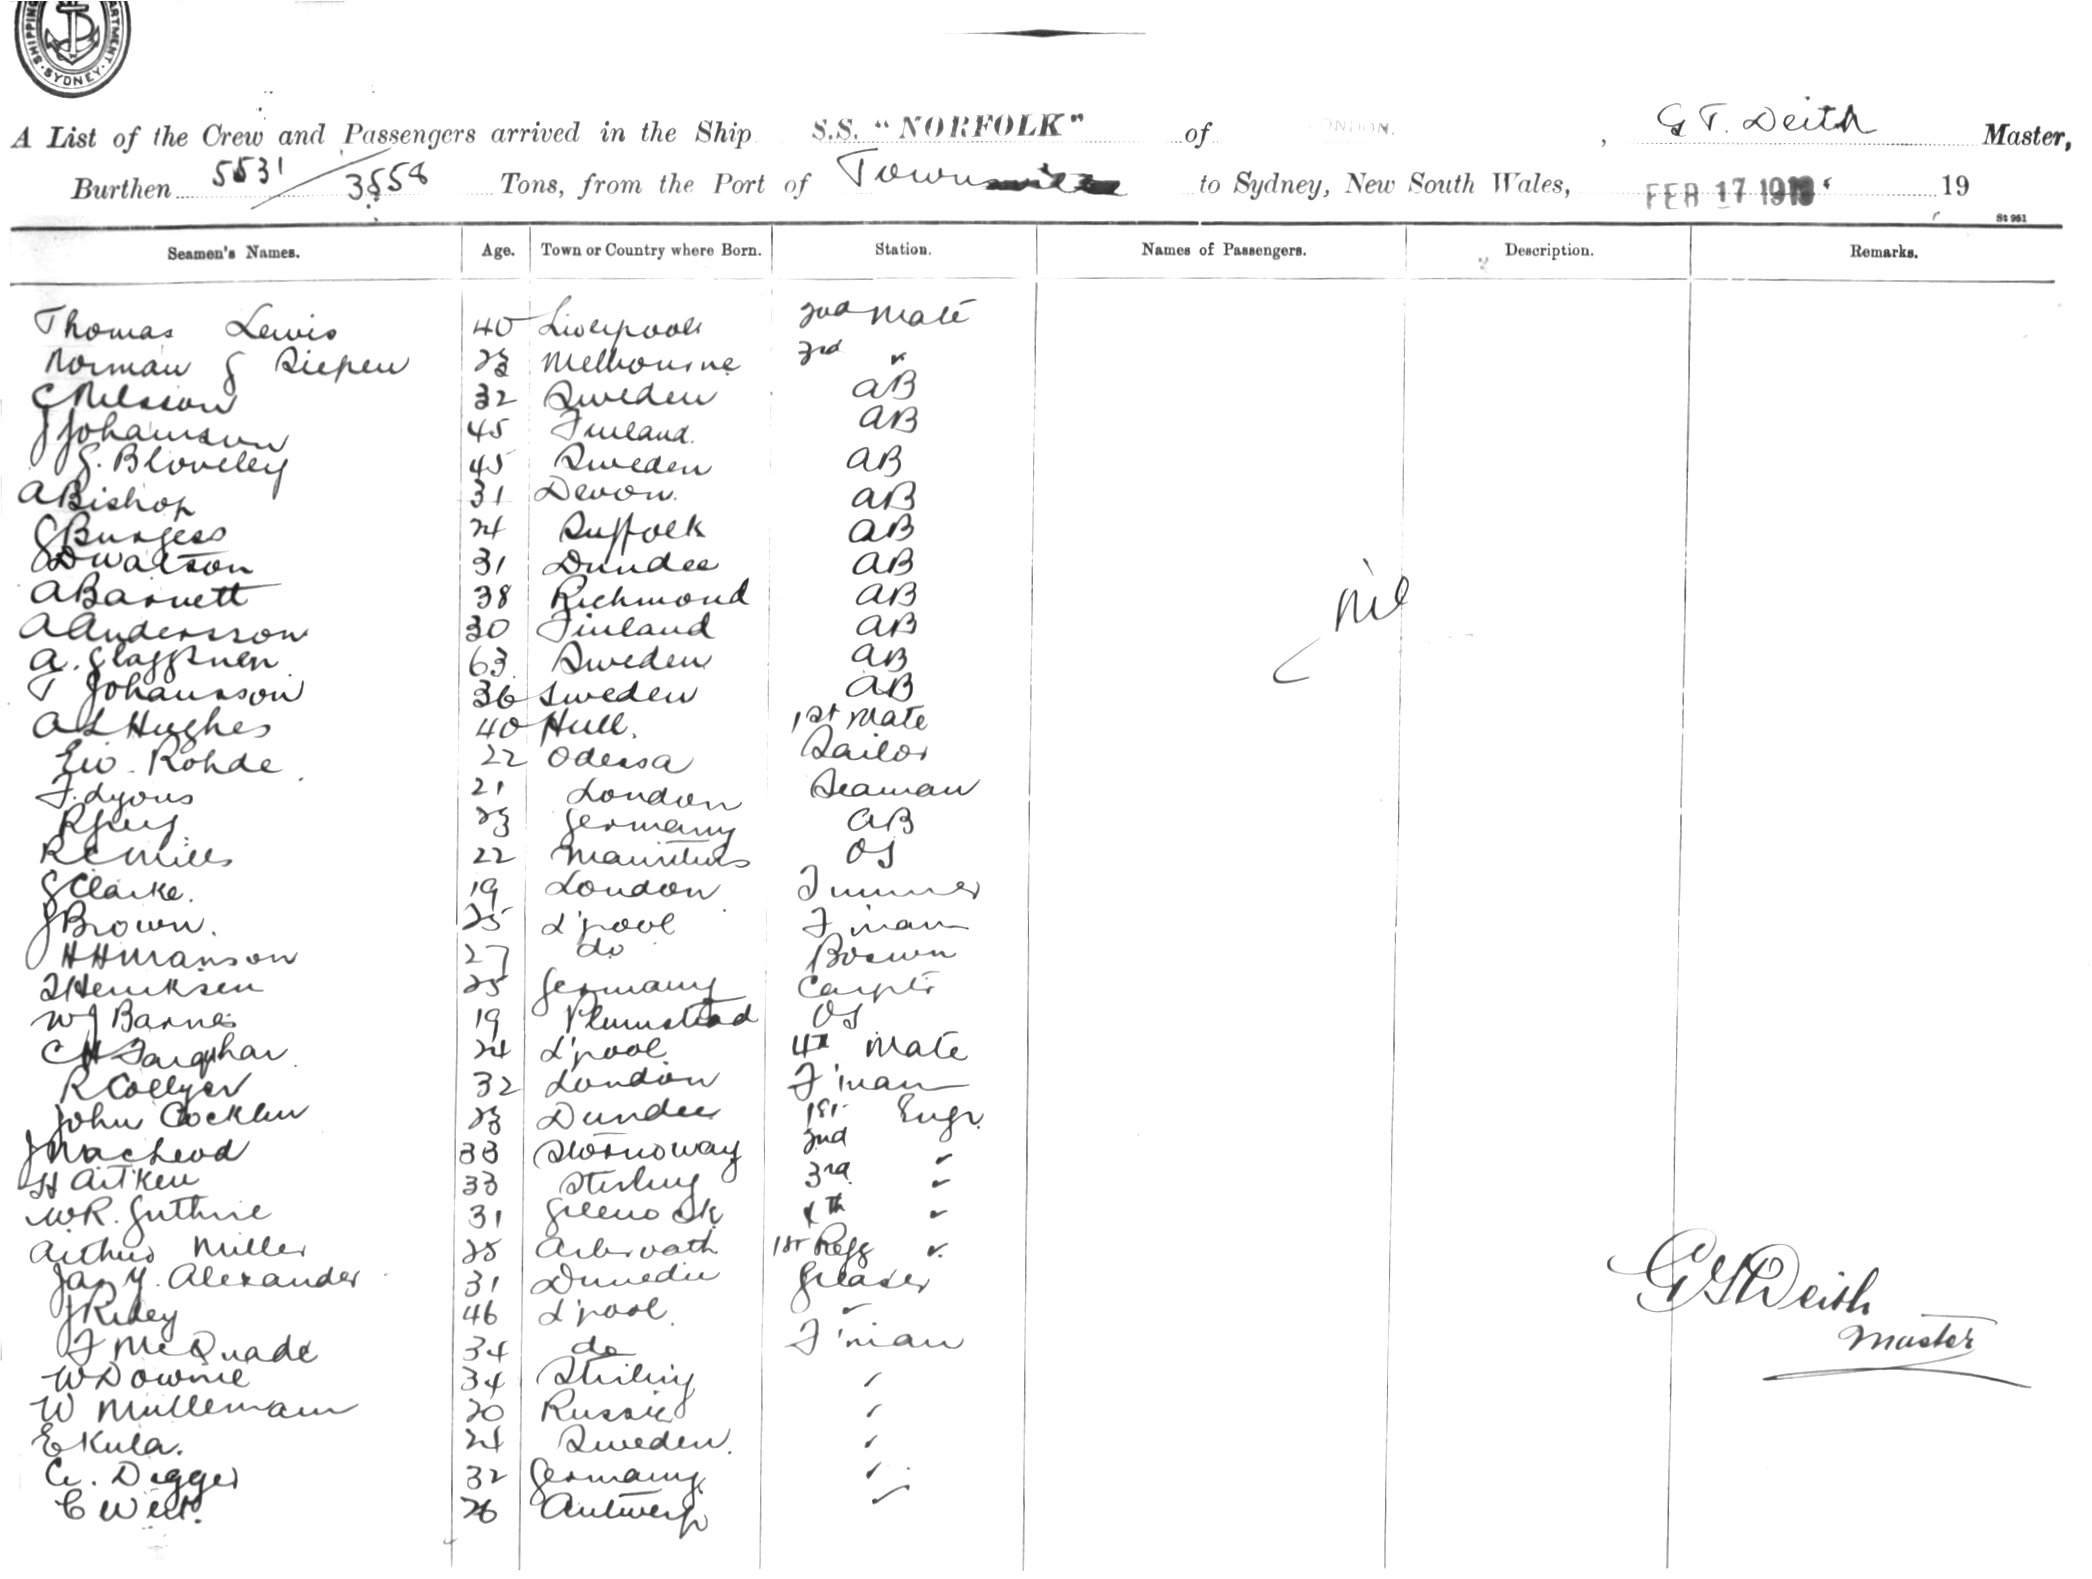 SHIPPING DEPARTMENT SYDNEY
A List of the Crew and Passengers arrived in the Ship S.S. "NORFOLK" of LONDON. , G T. Deith Master,
Burthen 5531 / 3558 Tons, from the Port of Townsville to Sydney, New South Wales, FEB 17 191 19
St 961
Seamen's Names. Age. Town or Country where Born. Station. Names of Passengers. Description. Remarks.
Thomas Lewis 40 Liverpool 2nd Mate
Norman G Siepen 23 Melbourne 3rd "
C Nilsson 32 Sweden AB
J Johansson 45 Finland. AB
G. 45 Sweden AB
A Bishop 31 Devon. AB
G Burgess 24 Suffolk AB
D Watson 31 Dundee AB
A Barnett 38 Richmond AB
A Andersson 30 Finland AB
A. 63 Sweden AB
T Johansson 36 Sweden AB
A L Hughes 40 Hull. 1st Mate
Rohde 22 Odessa Sailor
F. Lyons 21 London Seaman
R 23 Germany AB
R C Mills 22 Mauritius OS
G Clarke. 19 London Trimmer
J Brown. 25 L'pool F'man
H H Manson 27 do Bosun
Henriksen 25 Germany Carptr
W J Barnes 19 Plumstead OS
C H Farquhar 24 L'pool 4th Mate
R Collyer 32 London F'man
John Cocklin 23 Dundee 1st Engr.
J MacLeod 33 Stornoway 2nd "
H Aitken 33 Stirling 3rd "
W. R. Guthrie 31 Greenock 4th "
Arthur Miller 25 Arbroath 1st Refg "
Jas Y. Alexander 31 Dunedin Greaser
J Riley 46 L'pool. "
F McQuade 34 do F'man
W Downie 34 Stirling "
W Mullemann 20 Russia "
E Kula. 24 Sweden. "
C. Degger 32 Germany "
C Witt. 26 Antwerp "
Nil
G T Deith
Master